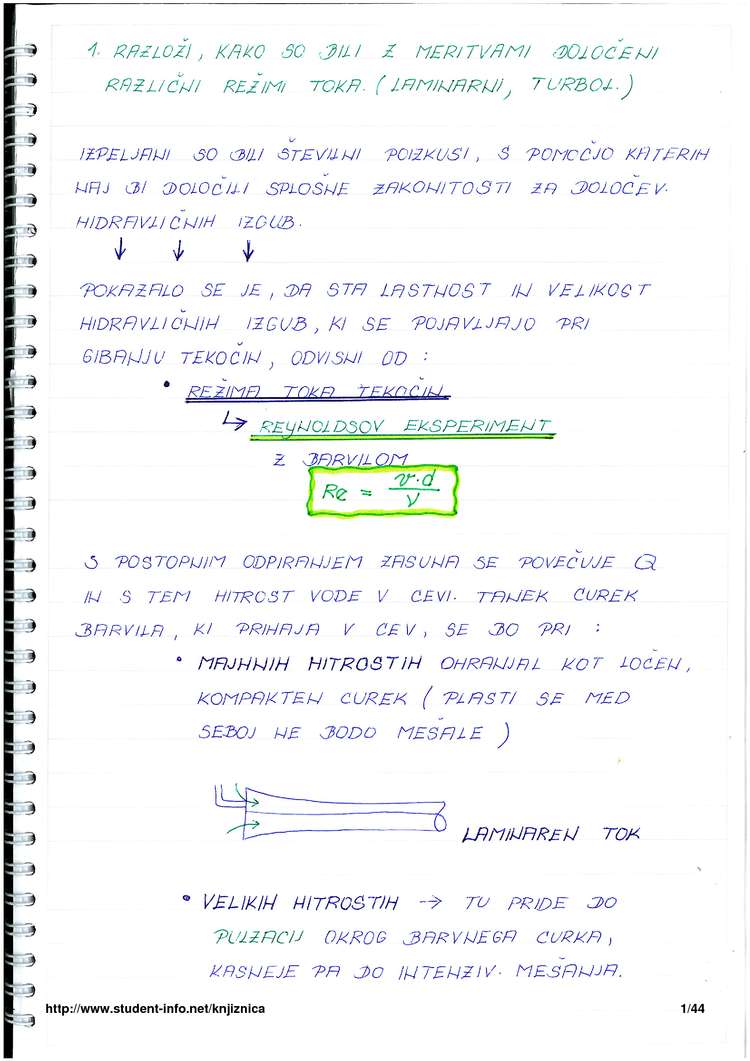 1. RAZLOŽI, KAKO SO BILI Z MERITVAMI DOLOČENI
RAZLIČNI REŽIMI TOKA. (LAMINARNI, TURBOL.)
IZPELJANI SO BILI ŠTEVILNI POIZKUSI, S POMOČJO KATERIH
NAJ BI DOLOČILI SPLOŠNE ZAKONITOSTI ZA DOLOČEV.
HIDRAVLIČNIH IZGUB.
↓ ↓ ↓
POKAZALO SE JE, DA STA LASTNOST IN VELIKOST
HIDRAVLIČNIH IZGUB, KI SE POJAVLJAJO PRI
GIBANJU TEKOČIN, ODVISNI OD :
• REŽIMA TOKA TEKOČIN
↳ REYNOLDSOV EKSPERIMENT
Z BARVILOM
Re = v·d / ν
S POSTOPNIM ODPIRANJEM ZASUNA SE POVEČUJE Q
IN S TEM HITROST VODE V CEVI. TANEK CUREK
BARVILA, KI PRIHAJA V CEV, SE BO PRI :
• MAJHNIH HITROSTIH OHRANJAL KOT LOČEN,
KOMPAKTEN CUREK ( PLASTI SE MED
SEBOJ NE BODO MEŠALE )
LAMINAREN TOK
• VELIKIH HITROSTIH → TU PRIDE DO
PULZACIJ OKROG BARVNEGA CURKA,
KASNEJE PA DO INTENZIV. MEŠANJA.
http://www.student-info.net/knjiznica 1/44